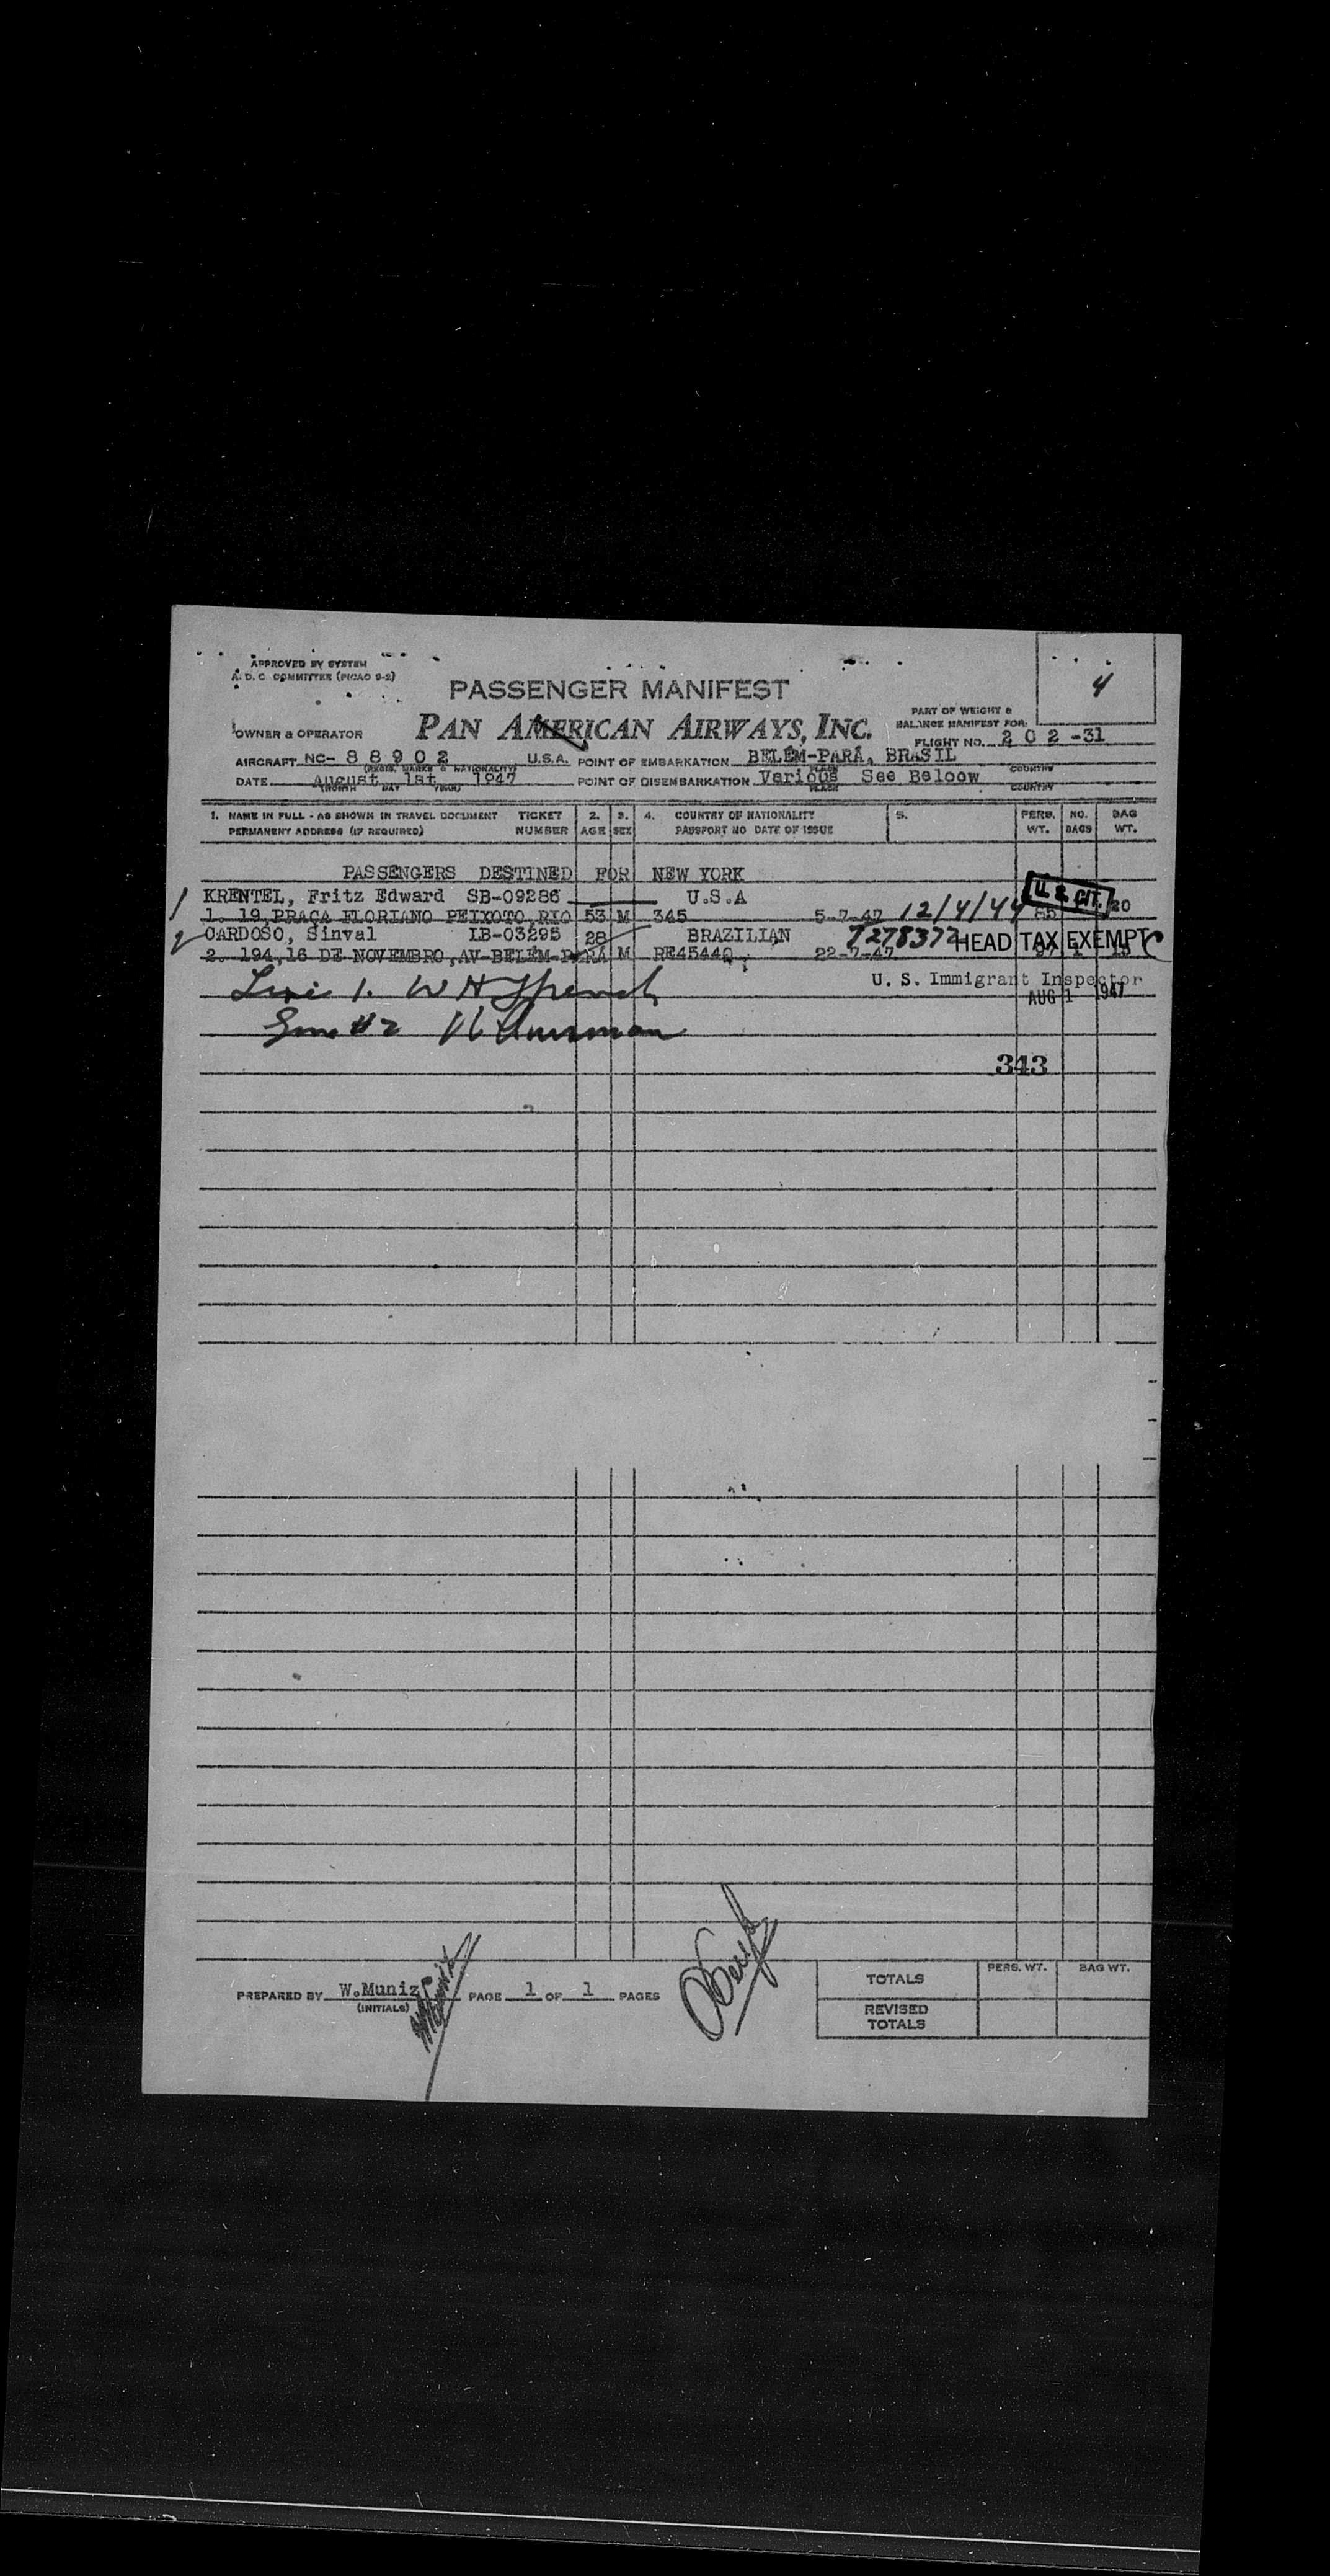 APPROVED BY SYSTEM
A. D. C. COMMITTEE (PICAO 9-2)
4
PASSENGER MANIFEST
PAN AMERICAN AIRWAYS, INC.
PART OF WEIGHT &
BALANCE MANIFEST FOR:
OWNER & OPERATOR
FLIGHT NO. 2 0 2 -31
AIRCRAFT NC- 8 8 9 0 2 U.S.A. POINT OF EMBARKATION BELÉM-PARÁ, BRASIL
(REGIS. MARKS & NATIONALITY) PLACE COUNTRY
DATE August 1st 1947 POINT OF DISEMBARKATION Various See Beloow
(MONTH DAY YEAR) PLACE COUNTRY
1. NAME IN FULL - AS SHOWN IN TRAVEL DOCUMENT TICKET 2. 3. 4. COUNTRY OF NATIONALITY 5. PERS. NO. BAG
PERMANENT ADDRESS (IF REQUIRED) NUMBER AGE SEX PASSPORT NO DATE OF ISSUE WT. BAGS WT.
PASSENGERS DESTINED FOR NEW YORK
1 KRENTEL, Fritz Edward SB-09286 U.S.A U.S. CIT.
1. 19,PRAÇA FLORIANO PEIXOTO,RIO 53 M 345 5-7-47 12/4/44 85 20
2 CARDOSO, Sinval LB-03295 28 BRAZILIAN 7278372 HEAD TAX EXEMPT
2. 194,16 DE NOVEMBRO,AV-BELÉM-PARÁ M RE45440 22-7-47 97 1 15
U. S. Immigrant Inspector
1. W H
AUG 1 1947
#2
343
PREPARED BY W.Muniz PAGE 1 OF 1 PAGES
(INITIALS)
PERS. WT. BAG WT.
TOTALS
REVISED
TOTALS